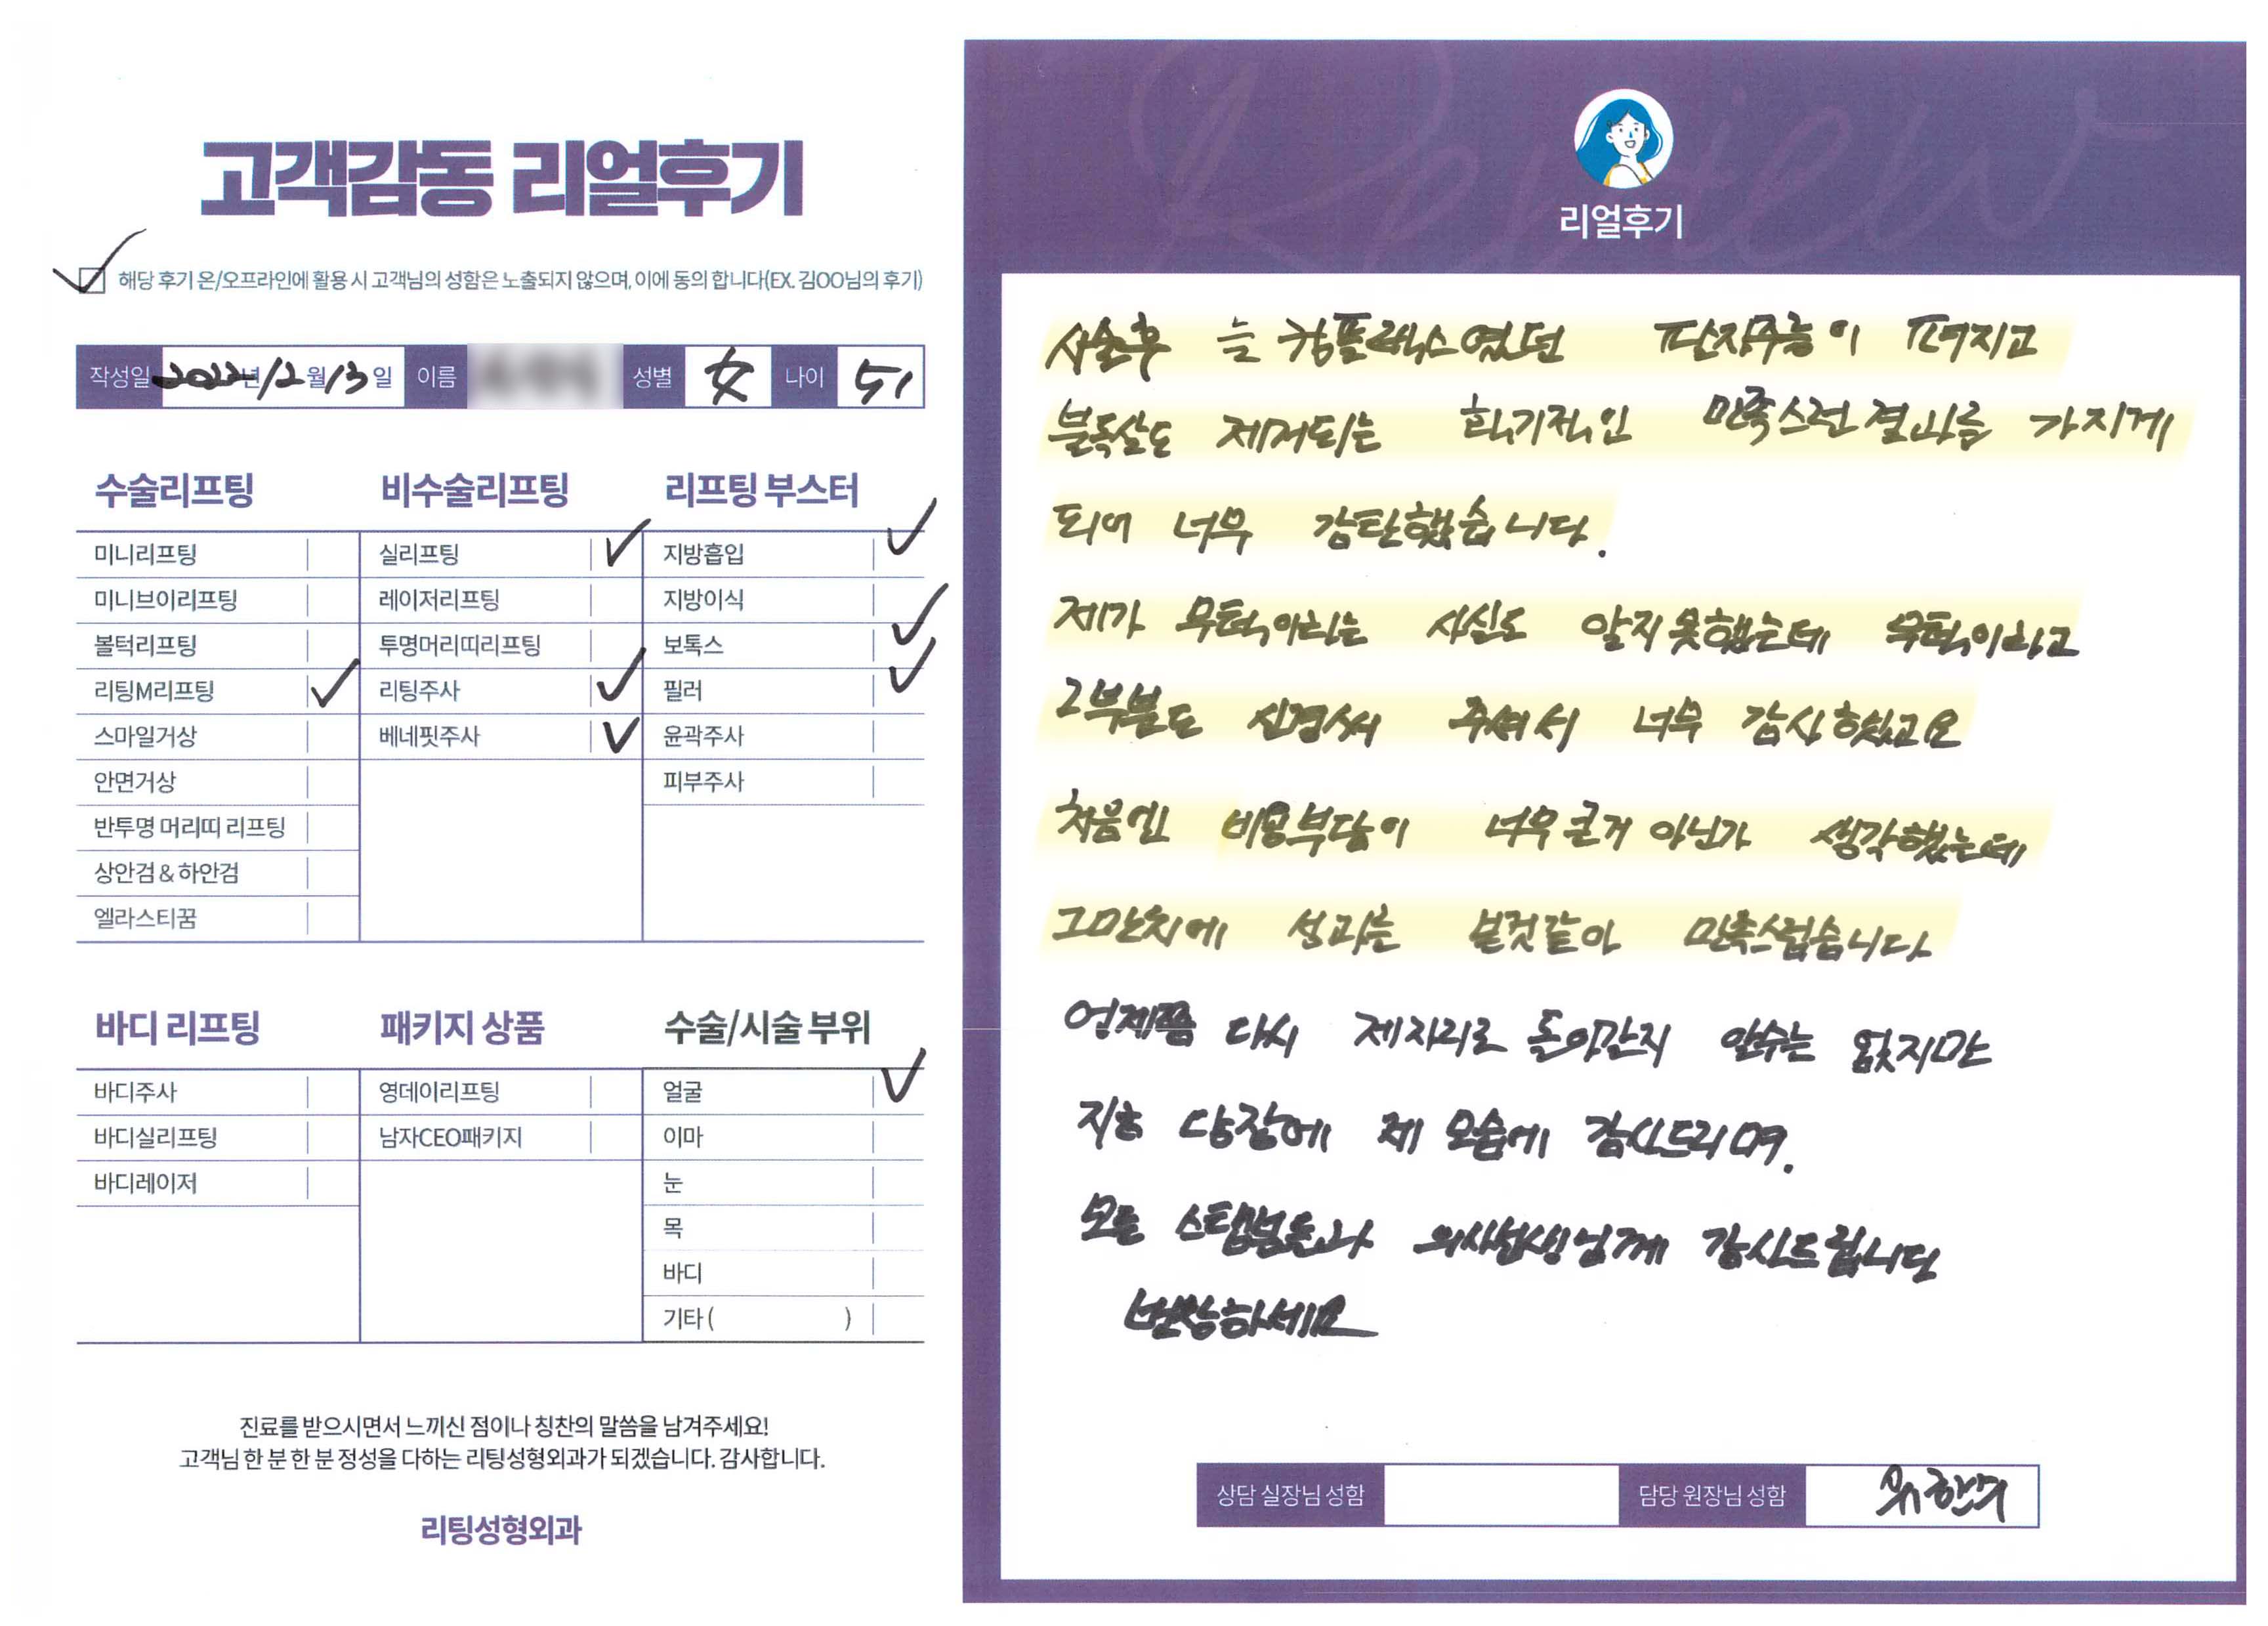 고객감동 리얼후기
해당 후기 온/오프라인에 활용 시 고객님의 성함은 노출되지 않으며, 이에 동의 합니다(EX. 김OO님의 후기)
작성일 2022년 12월 13일 이름 성별 女 나이 51
수술리프팅 비수술리프팅 리프팅 부스터
미니리프팅 실리프팅 지방흡입
미니브이리프팅 레이저리프팅 지방이식
볼턱리프팅 투명머리띠리프팅 보톡스
리팅M리프팅 리팅주사 필러
스마일거상 베네핏주사 윤곽주사
안면거상 피부주사
반투명 머리띠 리프팅
상안검 & 하안검
엘라스티꿈
바디 리프팅 패키지 상품 수술/시술 부위
바디주사 영데이리프팅 얼굴
바디실리프팅 남자CEO패키지 이마
바디레이저 눈
목
바디
기타 ( )
진료를 받으시면서 느끼신 점이나 칭찬의 말씀을 남겨주세요!
고객님 한 분 한 분 정성을 다하는 리팅성형외과가 되겠습니다. 감사합니다.
리팅성형외과
Review
리얼후기
시술후 늘 컴플렉스였던 팔자주름이 펴지고
불독살도 제거되는 획기적인 만족스런 결과를 가지게
되어 너무 감탄했습니다.
제가 무턱이라는 사실도 알지못했는데 무턱이라고
그부분도 신경써 주셔서 너무 감사했고요
처음엔 비용부담이 너무큰거 아닌가 생각했는데
그만치에 성과는 본것같아 만족스럽습니다
언제쯤 다시 제자리로 돌아간지 알수는 없지만
지금 당장에 제 모습에 감사드리며.
모든 스텝분들과 의사선생님께 감사드립니다
번창하세요
상담 실장님 성함 담당 원장님 성함